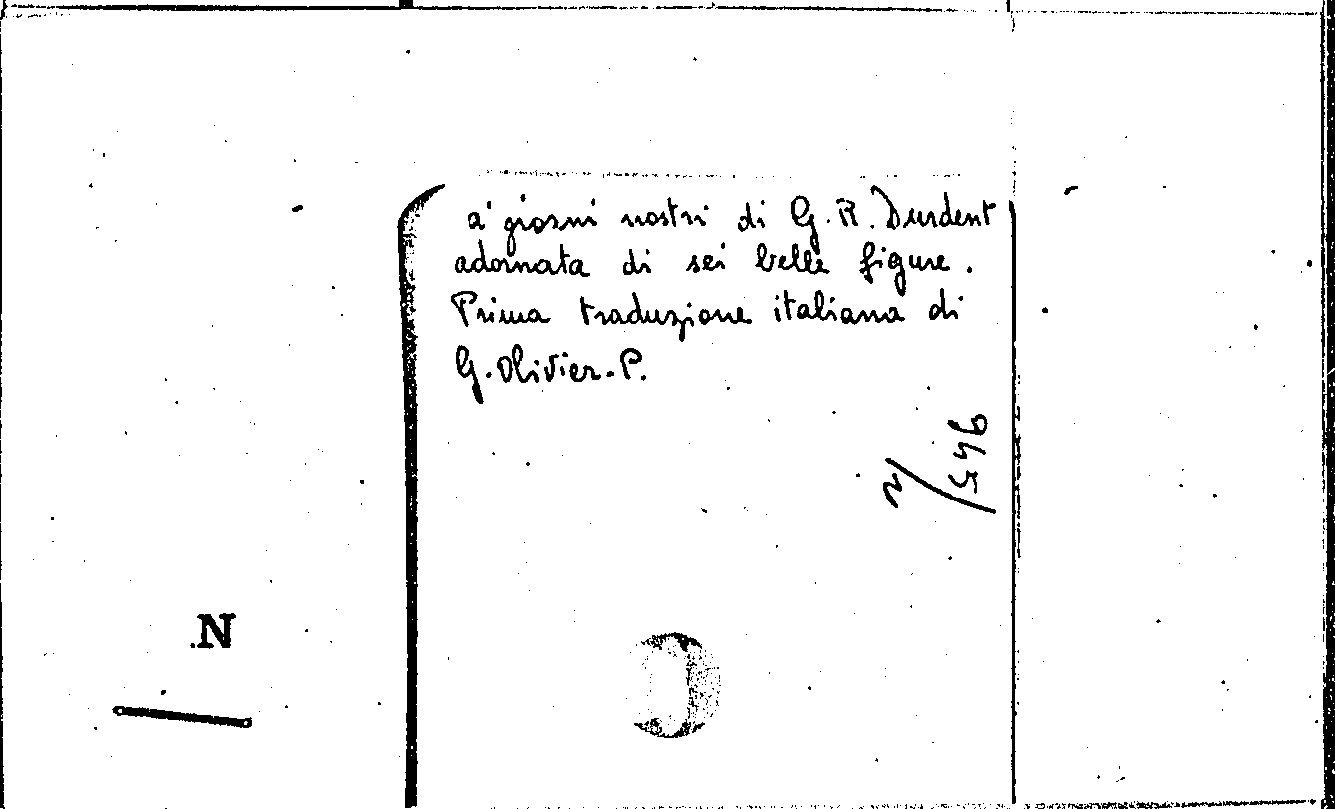 a' giorni nostri di G. R. Durdent
adornata di sei belle figure.
Prima traduzione italiana di
G. Olivier-P.
2/546
N